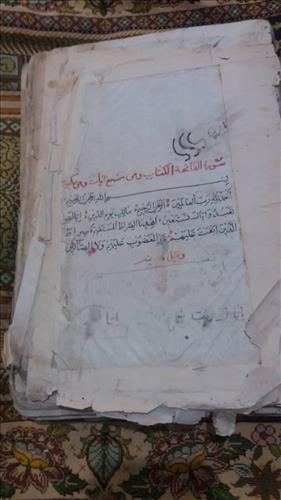 سورة الفاتحة الكتاب وهى سبع ايات وهى مكية
بسم الله الرحمن الرحيم
الحمد لله رب العالمين الرحمن الرحيم مالك يوم الدين اياك
نعبد واياك نستعين اهدنا الصراط المستقيم صراط
الذين انعمت عليهم غير المغضوب عليهم ولا الضالين